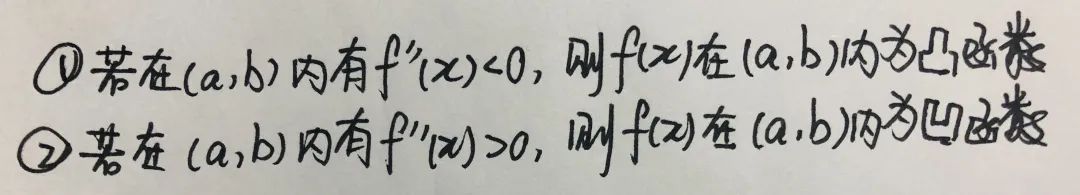 ①若在(a,b)内有f″(x)<0,则f(x)在(a,b)内为凸函数
②若在(a,b)内有f″(x)>0,则f(x)在(a.b)内为凹函数